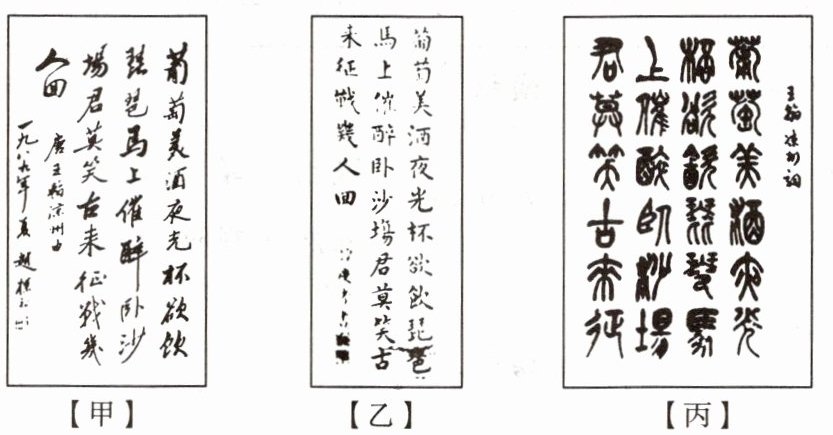 葡萄美酒夜光杯欲飲
琵琶馬上催醉卧沙
場君莫笑古来征战幾
人回
唐王翰凉州曲
一九八九年夏趙
葡萄美酒夜光杯欲飲琵琶
馬上催醉卧沙場君莫笑古
来征戰幾人回
王翰凉州詞
葡萄美酒夜光
杯欲飲琵琶馬
上催醉卧沙場
君莫笑古來征
【甲】
【乙】
【丙】